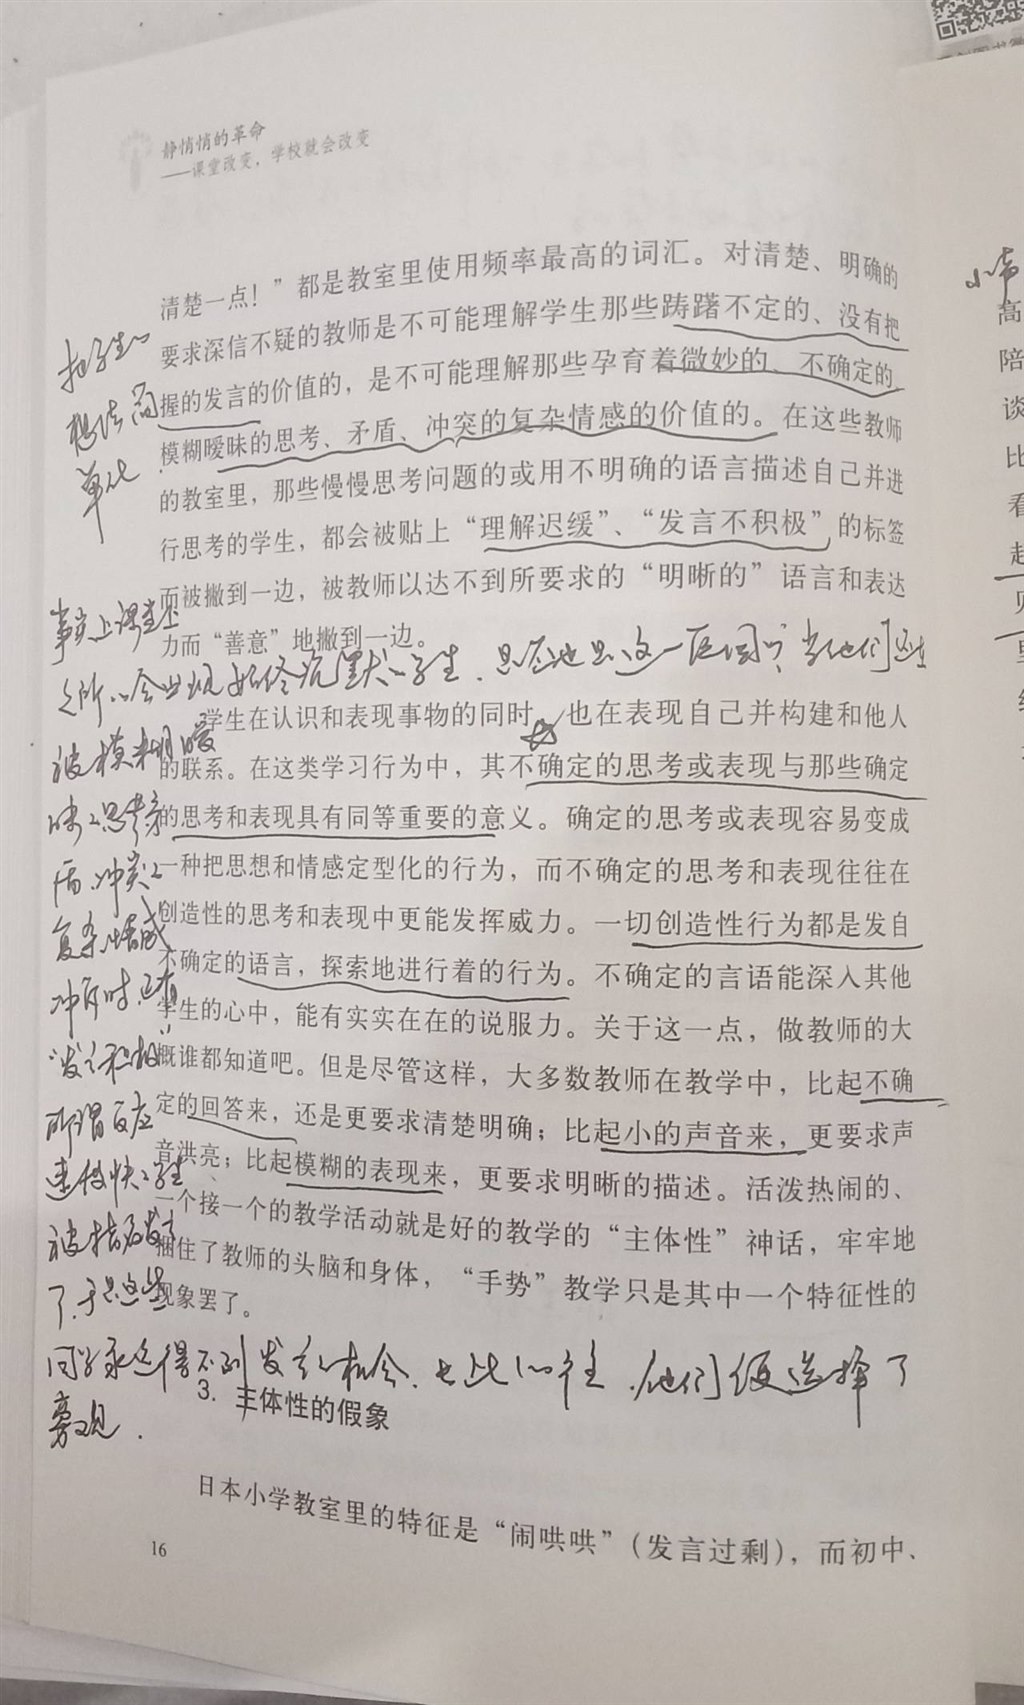 静悄悄的革命
——课堂改变，学校就会改变
清楚一点！”都是教室里使用频率最高的词汇。对清楚、明确的
要求深信不疑的教师是不可能理解学生那些踌躇不定的、没有把
握的发言的价值的，是不可能理解那些孕育着微妙的、不确定的、
模糊暧昧的思考、矛盾、冲突的复杂情感的价值的。在这些教师
的教室里，那些慢慢思考问题的或用不明确的语言描述自己并进
行思考的学生，都会被贴上“理解迟缓”、“发言不积极”的标签
而被撇到一边，被教师以达不到所要求的“明晰的”语言和表达
力而“善意”地撇到一边。
学生在认识和表现事物的同时，也在表现自己并构建和他人
的联系。在这类学习行为中，其不确定的思考或表现与那些确定
的思考和表现具有同等重要的意义。确定的思考或表现容易变成
一种把思想和情感定型化的行为，而不确定的思考和表现往往在
创造性的思考和表现中更能发挥威力。一切创造性行为都是发自
不确定的语言，探索地进行着的行为。不确定的言语能深入其他
学生的心中，能有实实在在的说服力。关于这一点，做教师的大
概谁都知道吧。但是尽管这样，大多数教师在教学中，比起不确
定的回答来，还是更要求清楚明确；比起小的声音来，更要求声
音洪亮；比起模糊的表现来，更要求明晰的描述。活泼热闹的、
一个接一个的教学活动就是好的教学的“主体性”神话，牢牢地
捆住了教师的头脑和身体，“手势”教学只是其中一个特征性的
现象罢了。
3. 主体性的假象
日本小学教室里的特征是“闹哄哄”（发言过剩），而初中、
16
把学生的
想法简
单化
事实上课堂上
之所以会出现始终沉默的学生，
当他们还在
被模糊暧
昧的思考矛
盾、冲突的
复杂情感
冲斥时，已有
“发言积极”
所谓反应
速度快的学生
被指名发言
了，于是这些
同学永远得不到发言的机会，长此以往，他们便选择了
旁观．